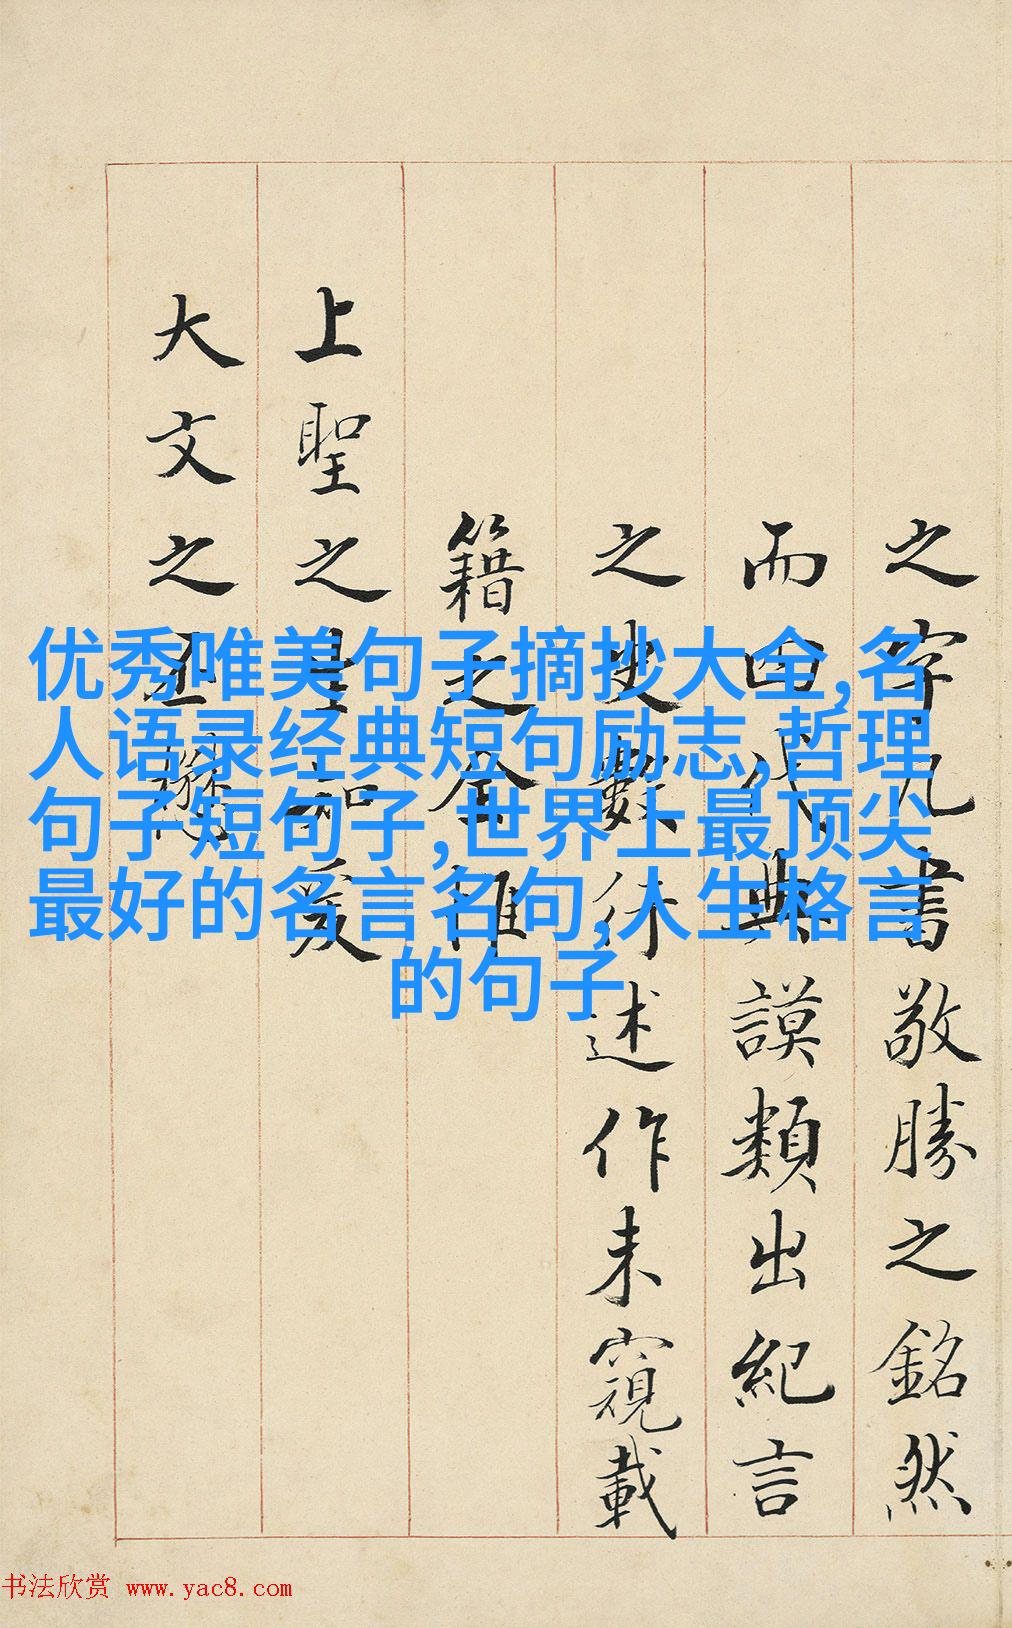 之字九書敬勝之銘然
而四代典謨類出紀言
之史數行述作未窺載
籍之全惟
上聖之知爰
大文之丕
优秀唯美句子摘抄大全,名
人语录经典短句励志,哲理
句子短句子,世界上最顶尖
最好的名言名句,人生格言
的句子
书法欣赏 www.yac8.com